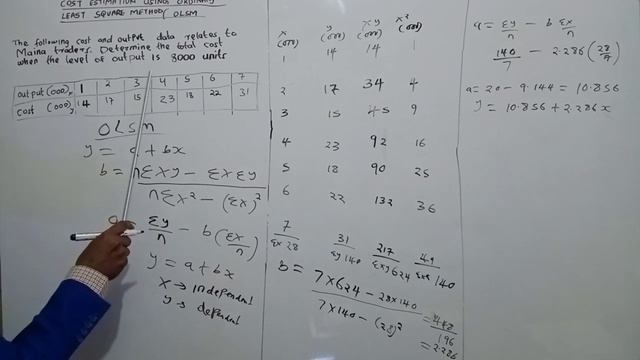 COST ESTIMATION USING ORDINARY
LEAST SQUARE METHOD/ OLSM
The following cost and output data relates to
Maina traders. Determine the total cost
when the level of output is 8000 units
output (000) 1 2 3 4 5 6 7
cost (000) 14 17 15 23 18 22 31
OLSM
y = a + bx
b = nΣxy - Σx Σy
nΣx² - (Σx)²
Σy/n - b(Σx/n)
y = a + bx
x → independent
y → dependent
x y xy x²
(000) (000) (000) (000)
1 14 14 1
2 17 34 4
3 15 45 9
4 23 92 16
5 18 90 25
6 22 132 36
7 31 217 49
Σx 28 Σy 140 Σxy 624 Σx² 140
b = 7 x 624 - 28 x 140
7 x 140 - (28)²
= 448
196
= 2.286
a = Σy/n - b Σx/n
140/7 - 2.286 (28/7)
a = 20 - 9.144 = 10.856
y = 10.856 + 2.286x